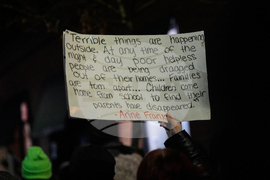 Terrible things are happening
outside. At any time of the
night & day poor helpless
people are being dragged
out of their home... Families
are torn apart... Children come
home from school to find their
parents have disappeared.
-Anne Frank